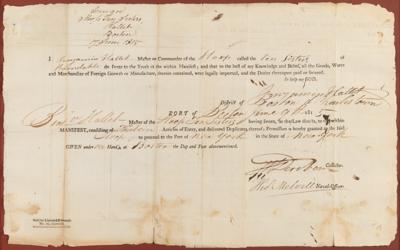 Sloop
Hallet
Boston
9 June 1815
I Benjamin Hallet Master or Commander of the Sloop called the Ten Sisters
do swear to the Truth of the within Manifest; and that to the best of my Knowledge and Belief, all the Goods, Wares
and Merchandize of Foreign Growth or Manufacture, therein contained, were legally imported, and the Duties thereupon paid or secured.
So help me GOD.
Benjamin Hallet
District of Boston & Charlestown
PORT of Boston June 9 1815
Benj Hallet Master of the Sloop Ten Sisters having sworn, as the Law directs, to the within
MANIFEST, consisting of Articles of Entry, and delivered Duplicates thereof; Permission is hereby granted to the said
Sloop to proceed to the Port of New York in the State of New York
GIVEN under our Hands, at Boston the Day and Year abovementioned.
Collector.
Thos Melvill Naval-Officer.